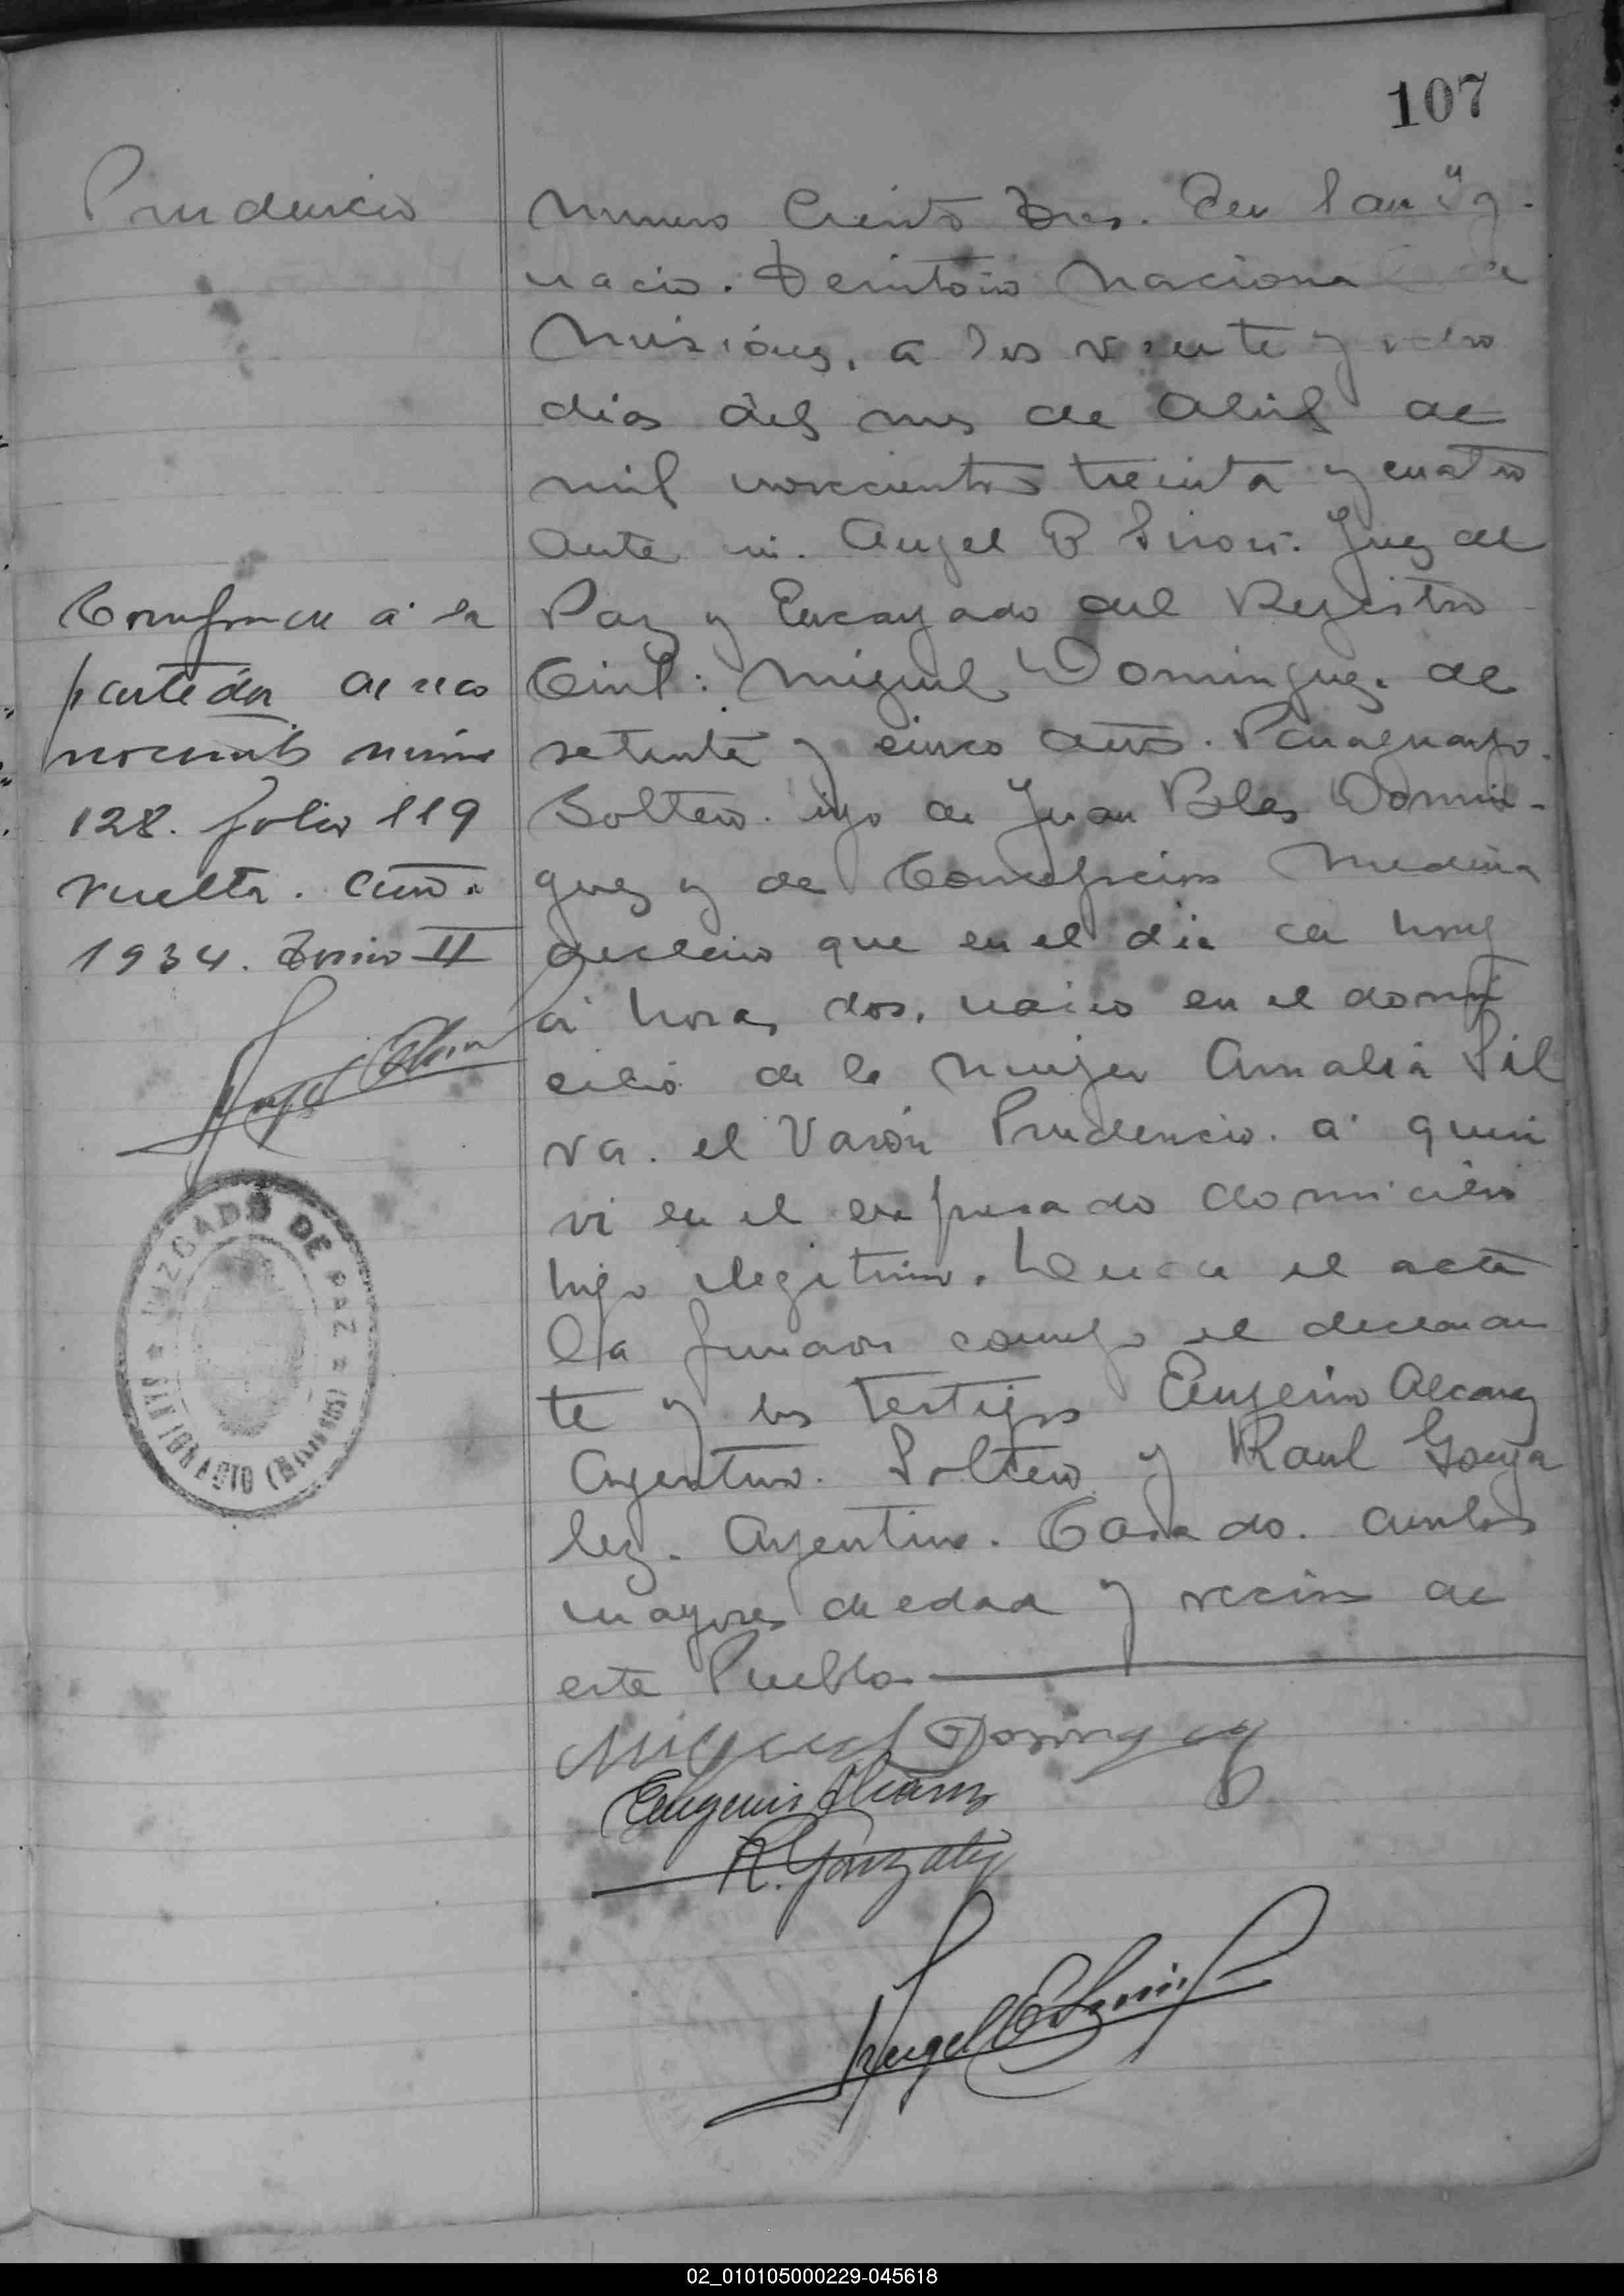 107
Prudencio
Numero Ciento Tres. En San Ig-
nacio. Territorio Nacional de
Misiones, a los veinte y ocho
dias del mes de Abril de
mil novecientos treinta y cuatro
Ante mi. Angel B
Juez de
Paz y Encargado del Registro
Civil: Miguel Dominguez. de
setenta y cinco años. Paraguayo.
Soltero. ijo de Juan Blas Domin-
guez y de Concepcion Medina
declaro que en el dia de hoy
a horas dos. nacio en el domi
cilio de la mujer Amalia Sil
va. el Varón Prudencio. a quien
vi en el expresado domicilio
hijo ilegitimo. Leida el acta
la firmaron conmigo el declaran
te y los testigos Eugenio Alcaraz
Argentino. Soltero y Raul Gonza
lez. Argentino. Casado. ambos
mayores de edad y vecinos de
este Pueblo
Miguel Dominguez
Eugenio Alcaraz
R. Gonzalez
Angel
Corresponde a la
partida de reco
nocimiento numero
128. folio 119
vuelta. Año.
1934. Tomo II
JUZGADO DE PAZ
SAN IGNACIO (MISIONES)
02_010105000229-045618